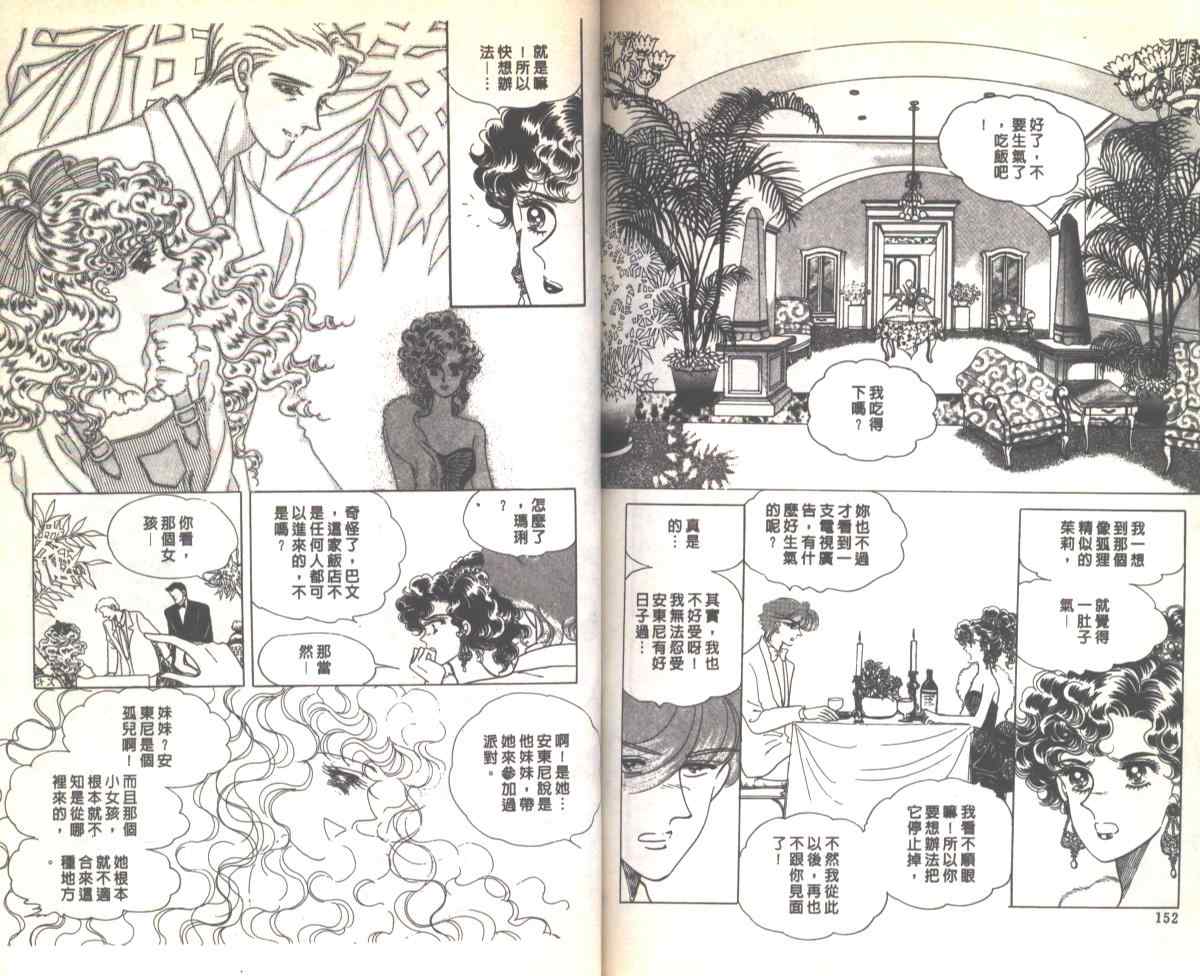 好了，不
要生氣了
，吃飯吧
！
我吃得
下嗎？
我一想
到那個
像狐狸
精似的
茱莉，
就覺得
一肚子
氣—
妳也不過
才看到一
支電視廣
告，有什
麼好生氣
的呢？
我看不順眼
嘛！所以你
要想辦法把
它停止掉，
不然我從此
以後，再也
不跟你見面
了！
真是
的…
其實，我也
不好受呀！
我無法忍受
安東尼有好
日子過…
152
就是嘛
！所以
快想辦
法—…
怎麼了
，瑪琍
？
奇怪了，巴文
，這家飯店不
是任何人都可
以進來的，不
是嗎？
那當
然—
你看，
那個女
孩—
啊！是她…
安東尼說是
他妹妹，帶
她來參加過
派對。
妹妹？安
東尼是個
孤兒啊！
而且那個
小女孩，
根本就不
知是從哪
裡來的，
她根本
就不適
合來這
種地方
。